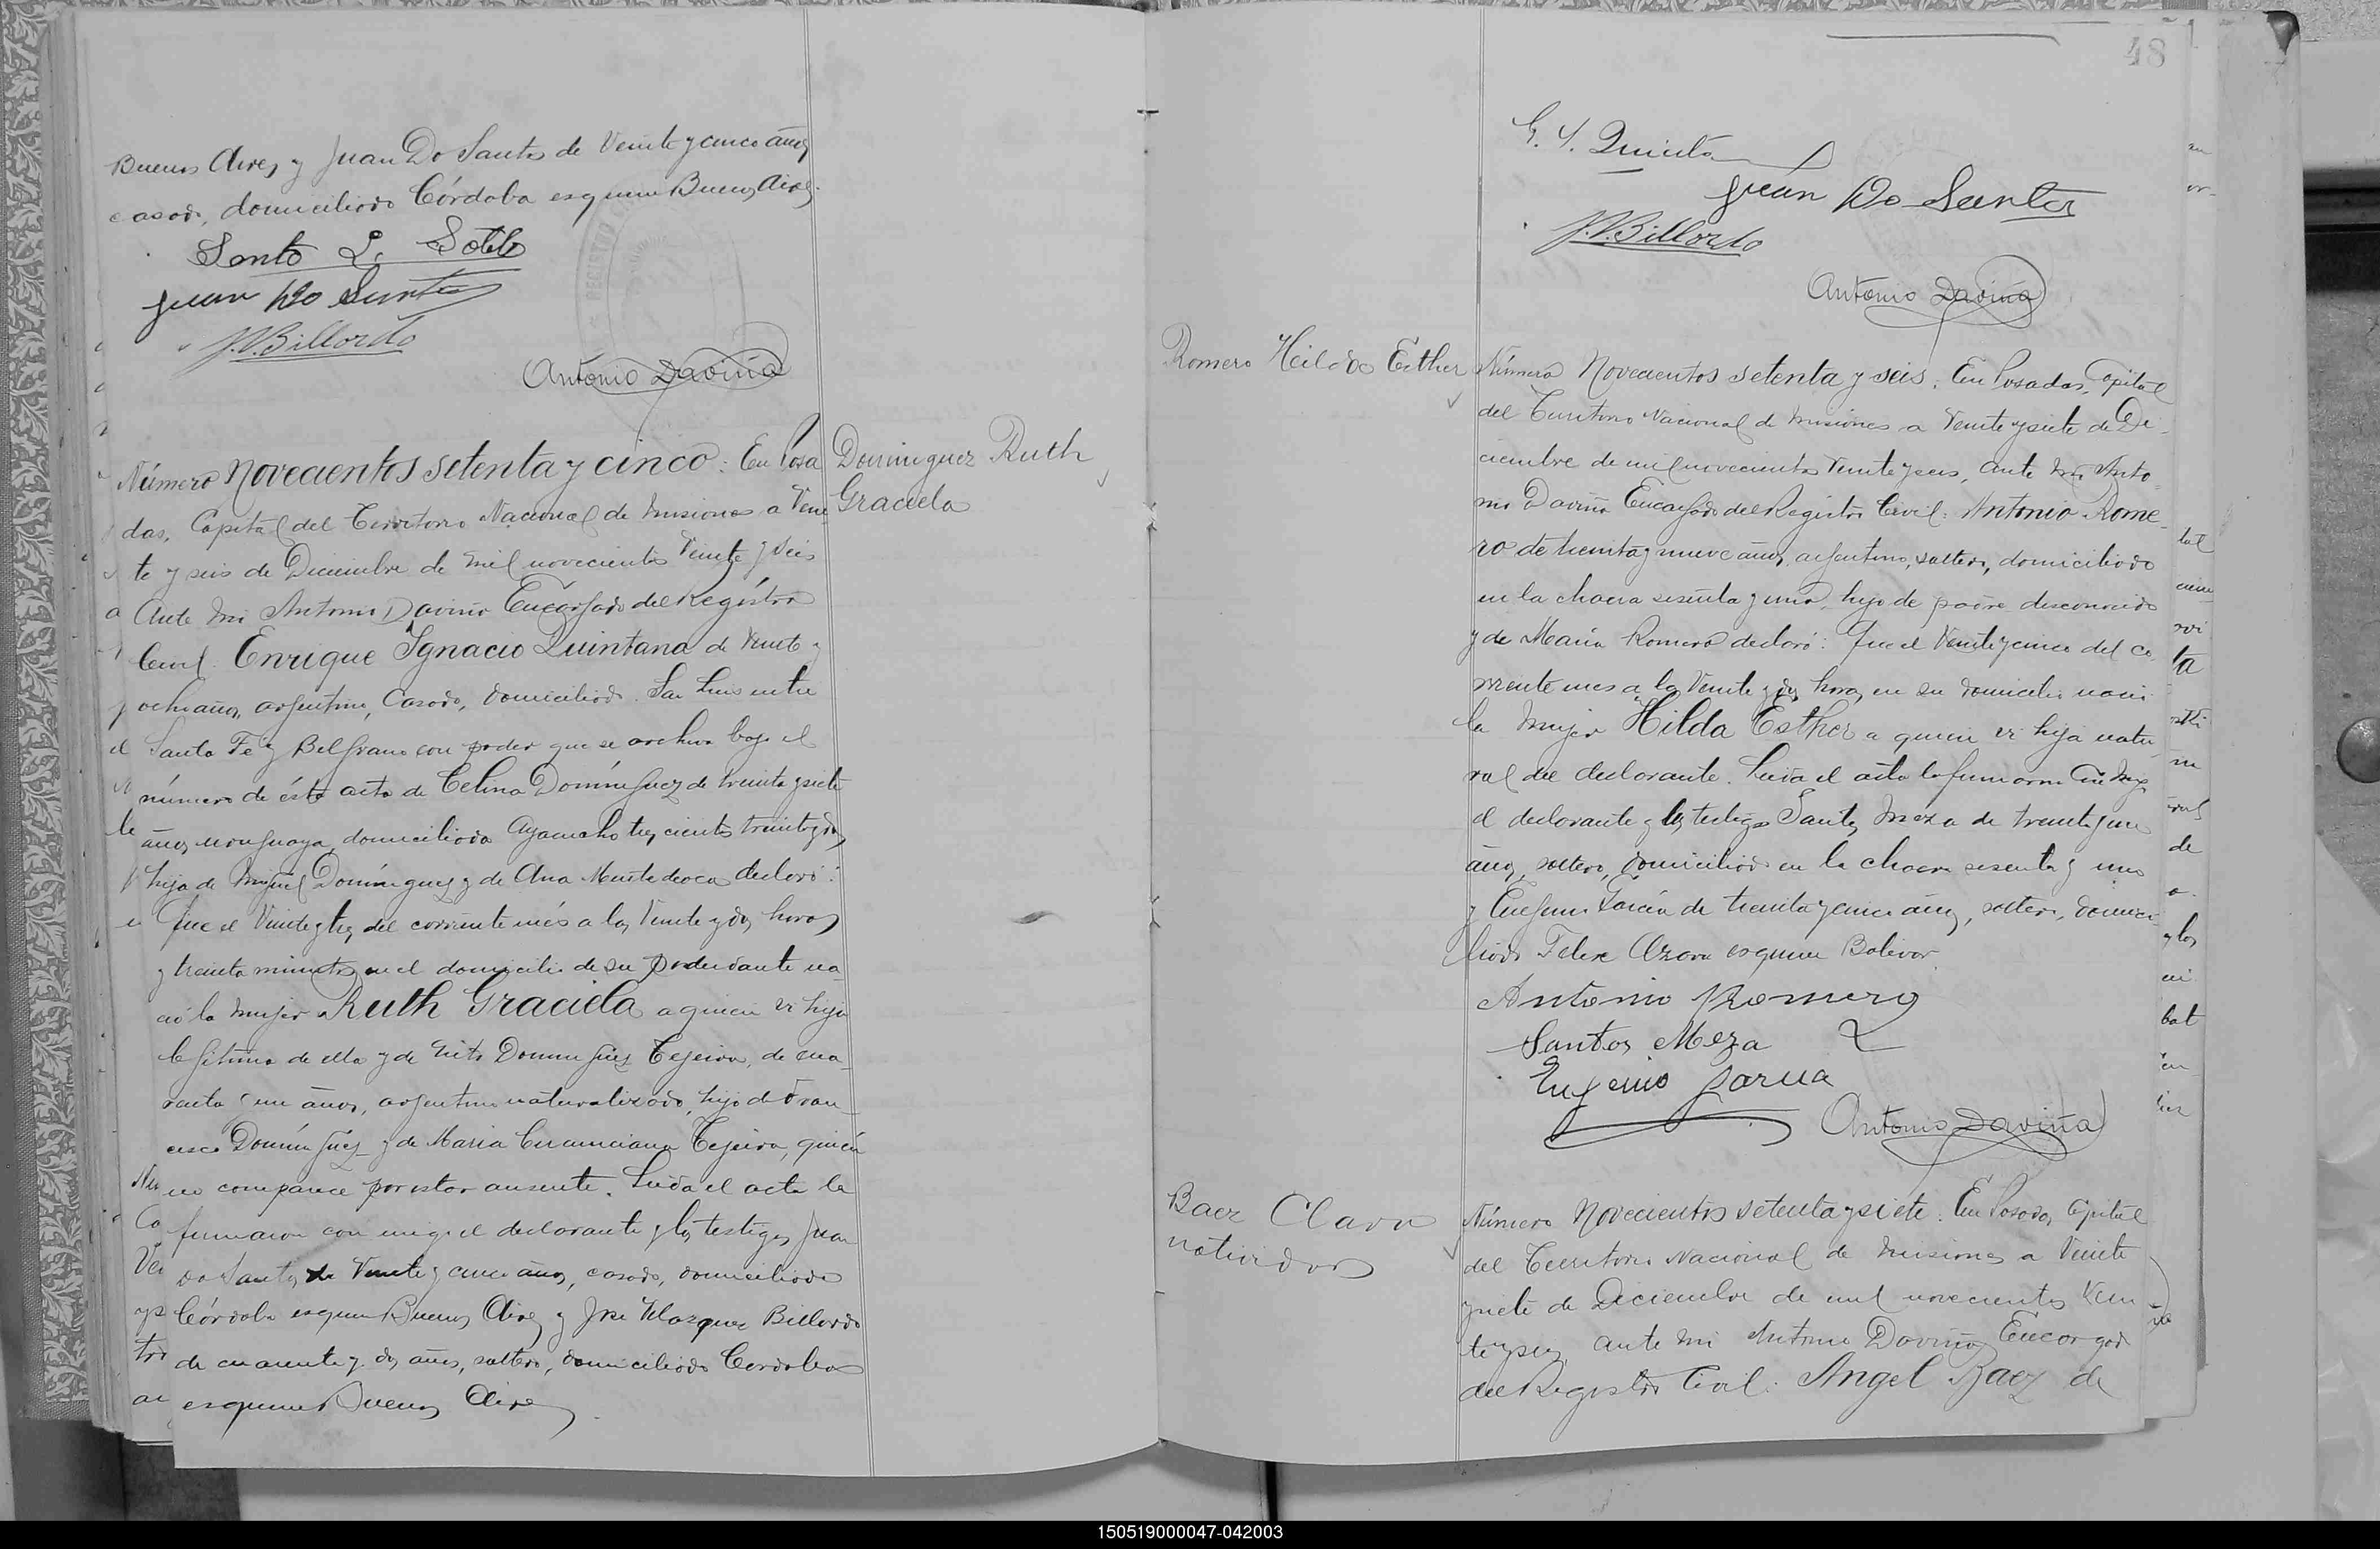 Buenos Aires y Juan Do Santos de Veinte y cinco años
casado, domiciliado Córdoba esquina Buenos Aires.
Santo L. Sotelo
Juan Do Santos
J.V. Billordo
Antonio Daviña
REGISTRO
Número Novecientos setenta y cinco: En Posa
das, Capital del Territorio Nacional de Misiones a Vein
te y seis de Diciembre de mil novecientos Veinte y seis
Ante mi Antonio Daviña Encargado del Registro
Civil: Enrique Ignacio Quintana de Veinte y
ocho años, argentino, casado, domiciliado San Luis entre
Santa Fé y Belgrano con poder que se archiva bajo el
número de ésta acta de Celina Domínguez de treinta y siete
años, uruguaya, domiciliada Ayacucho tres cientos treinta y dos
hija de Miguel Domínguez y de Ana Montedeoca declaró:
Que el Veinte y tres del corriente més a las Veinte y dos horas
y treinta minutos en el domicilio de su poderdante na
ció la mujer Ruth Graciela a quien vi hija
legítima de ella y de Domínguez Tejeira, de cua
renta y un años, argentino naturalizado, hijo de Fran
cisco Domínguez y de Maria Tejeira, quien
no comparece por estar ausente. Leida el acta la
firmaron con migo el declarante y los testigos Juan
Do Santos de Veinte y cinco años, casado, domiciliado
Córdoba esquina Buenos Aires y José Velazquez Billordo
de cuarenta y dos años, soltero, domiciliado Cordoba
esquina Buenos Aires
Dominguez Ruth
Graciela
48
E. I. Quintana
Juan Do Santos
J.V. Billordo
Antonio Daviña
Romero Hilda Esther
Número Novecientos setenta y seis: En Posadas, Capital
del Territorio Nacional de Misiones a Veinte y siete de Di
ciembre de mil novecientos Veinte y seis, ante mi Anto
nio Daviña Encargado del Registro Civil: Antonio Rome
ro de treinta y nueve años, argentino, soltero, domiciliado
en la chacra sesenta y uno, hijo de padre desconocido
y de María Romero declaró: Que el Veinte y cinco del co
rriente mes a las Veinte y dos horas, en su domicilio nació
la mujer Hilda Esther a quien vi hija natu
ral del declarante. Leida el acta la firmaron con migo
el declarante y los testigos Santos Meza de treinta y un
años, soltero, domiciliado en la chacra sesenta y uno
y Eugenio García de treinta y cinco años, soltero, domici
liado Felix Azara esquina Bolivar.
Antonio Romero
Santos Meza
Eugenio Garcia
Antonio Daviña
Baez Clara
Natividad
Número Novecientos setenta y siete: En Posadas, Capital
del Territorio Nacional de Misiones a Veinte
y siete de Diciembre de mil novecientos Vein
te y seis, ante mi Antonio Daviña Encargado
del Registro Civil: Angel Baez de
150519000047-042003